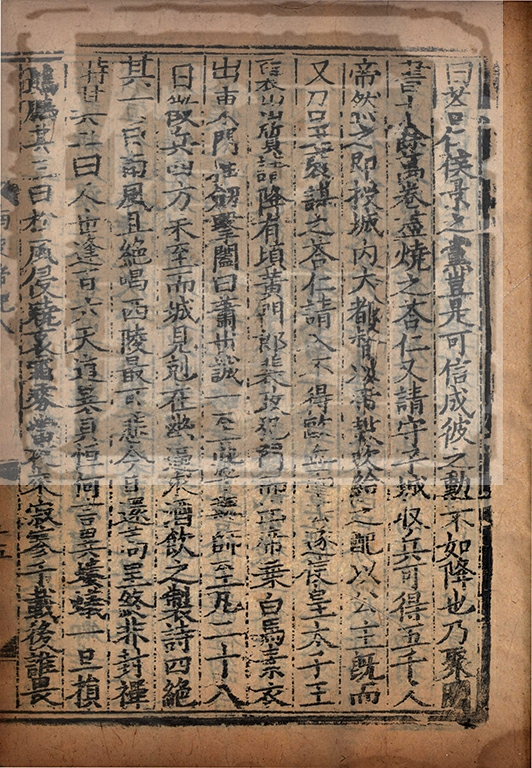 曰荅仁侯景之黨豈是可信成彼之勳不如降也乃聚圖
書十餘萬卷盡燒之荅仁又請守子城收兵可得五千人
帝然之即授城内大都督以帝鼓吹給之配以公主既而
又召王褒謀之荅仁請入不得歐血而去遂使皇太子王
褒出質請降有頃黃門郎裴政犯門而出帝乘白馬素衣
出東門抽劒擊闔曰蕭世誠一至此乎魏師至凡二十八
日徵兵四方未至而城見剋在幽逼求酒飲之製詩四絶
其一曰南風且絶唱西陵最可悲今日還蒿里終非封禪
時其二曰人世逢百六天道異貞恒何言異螻蟻一旦損
鯤鵬其三曰松風侵曉哀霜雰當夜來寂寥千載後誰畏